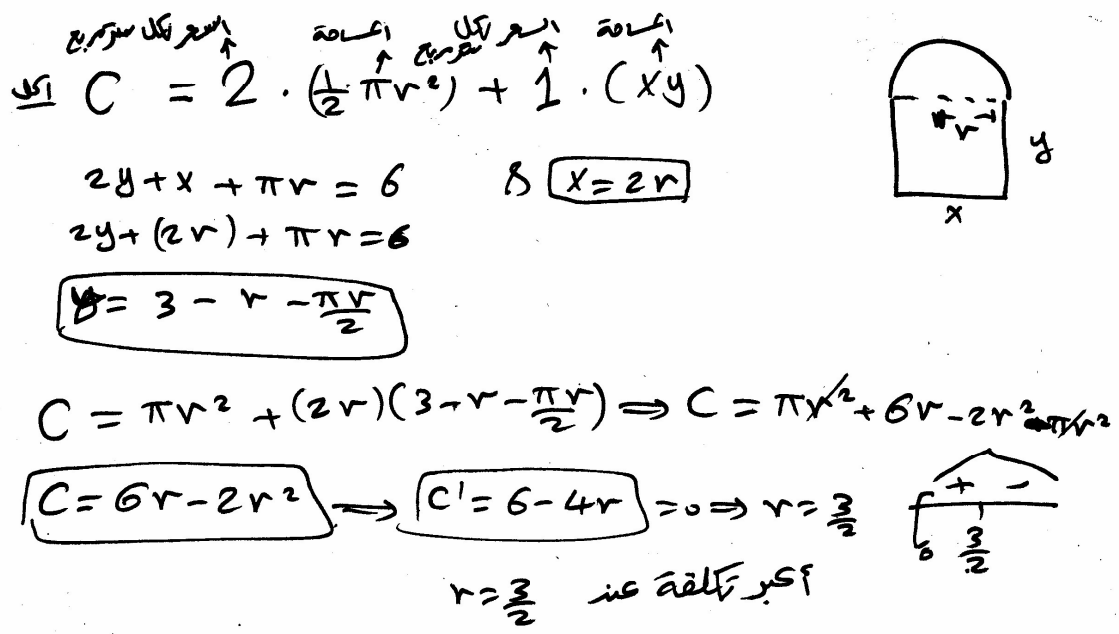 السعر لكل متر مربع المساحة السعر لكل متر مربع المساحة
الحل C = 2 · (1/2 πr²) + 1 · (xy)
r
y
x
2y + x + πr = 6 & x = 2r
2y + (2r) + πr = 6
y = 3 - r - πr/2
C = πr² + (2r)(3 - r - πr/2) ⇒ C = πr² + 6r - 2r² - πr²
C = 6r - 2r² ⇒ C' = 6 - 4r = 0 ⇒ r = 3/2
+ -
0 3/2
أكبر تكلفة عند r = 3/2